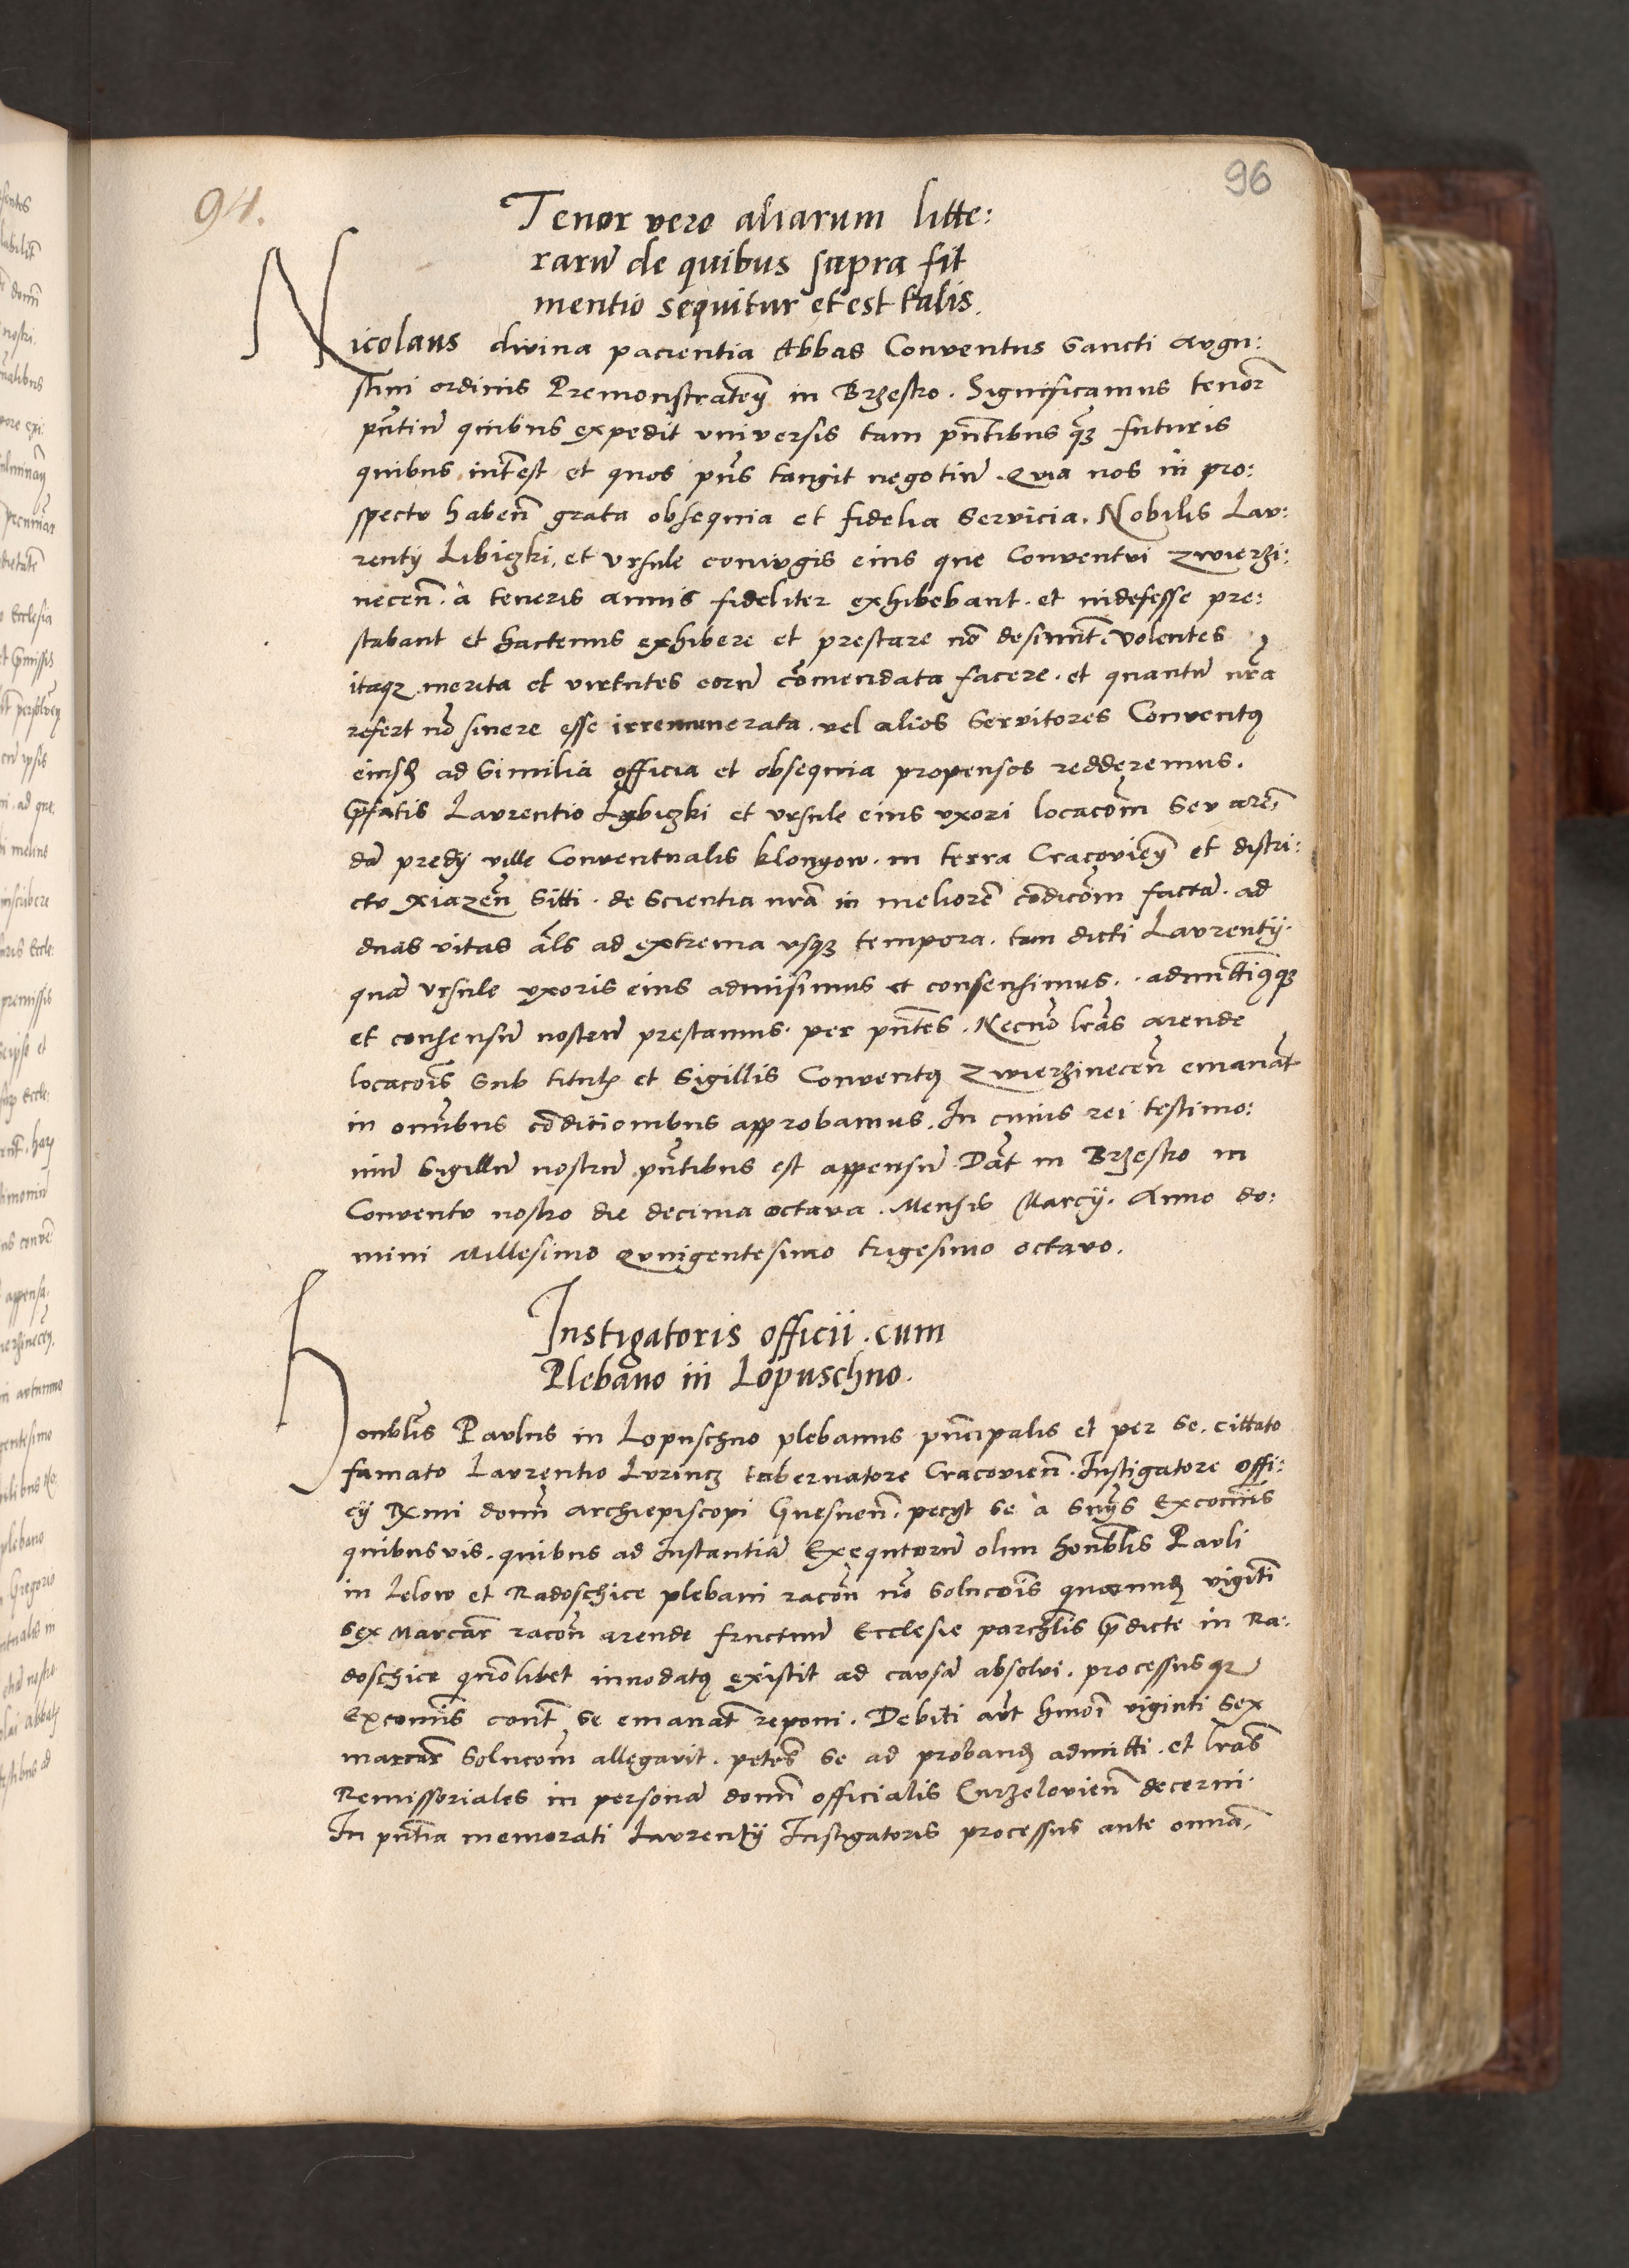 94.
96
Tenor vero aliarum litte:
rarū de quibus supra fit
mentio sequitur et est talis.
Nicolaus divina pacientia Abbas Conventus Sancti Augu:
stini ordinis Premonstrateñ in Brzesko. Significamus tenor̄
pñtiū quibus expedit universis tam pñtibus q̃ȝ futuris
quibus int̃est et quos pñs tangit negotiū. Quia nos in pro:
spectu habeñ grata obsequia et fidelia Servicia. Nobilis Lau:
rentij Libiczki, et Ursule coniugis eius que Conventui Zwierzi:
neceñ. à teneris annis fideliter exhibebant. et indefesse pre:
stabant et hactenus exhibere et prestare nō desinunt. Volentes
itaqȝ merita et virtutes eorū cōmendata facere. et quantū nr̃a
refert nō sinere esse irremunerata. vel alios Servitores Conventꝯ
eiusđ ad Similia officia et obsequia propensos redderemus.
p̃fatis Laurentio Lybiczki et Ursule eius uxori locacõm Seu aren̄
dā predij ville Conventualis Klonyow. in terra Cracovieñ et distri:
ctu Xiazeñ Sitti. de Scientia nr̃a in meliorē cōdicõm factā. ad
duas vitas als̃ ad extrema usqȝ tempora. tam dicti Laurentij.
quā Ursule uxoris eius admisimus et consensimus. admittimꝯqȝ
et consensū nostrū prestamus. per pñtes. Necnō lr̃as arende
locacõis Sub titulis et Sigillis Conventꝯ Zwierzineceñ emanat̃
in omībus cōditionibus approbamus. In cuius rei testimo:
niū Sigillū nostrū pñtibus est appensū. Dat̃ in Brzesko in
Conventu nostro die decima octava. Mensis Marcij. Anno do:
mini Millesimo Quingentesimo trigesimo octavo.
Instigatoris officii. cum
Plebano in Lopuschno.
Honoblis̃ Paulus in Lopuschno plebanus pñcipalis et per se. cittato
famato Laurentio Lurincz tabernatore Cracovieñ. Instigatore offi:
cij Rx̃mi domñ Archiepiscopi Gnesneñ. pecijt se à Sñijs Excoм̃is
quibusvis. quibus ad Instantiā Exequtorū olim honoblis̃ Pauli
in Lelow et Radoschice plebani racõñ nō Solucõis quarundȝ viginti
Sex Marcar̃ racõñ arende fructuū Ecclesie paroch̃lis p̃dicte in Ra:
doschice quõlibet innodatꝯ existit ad causā absolvi. processusqȝ
Excom̃is cont̃ se emanat̃ reponi. Debiti aūt hmōi viginti Sex
marcar̃ Solucõm allegavit. petes̃ se ad probandȝ admitti. et lr̃as
Remissoriales in personā domñ officialis Curzelovieñ decerni.
In pñtia memorati Laurentij Instigatoris processus ante omniā.